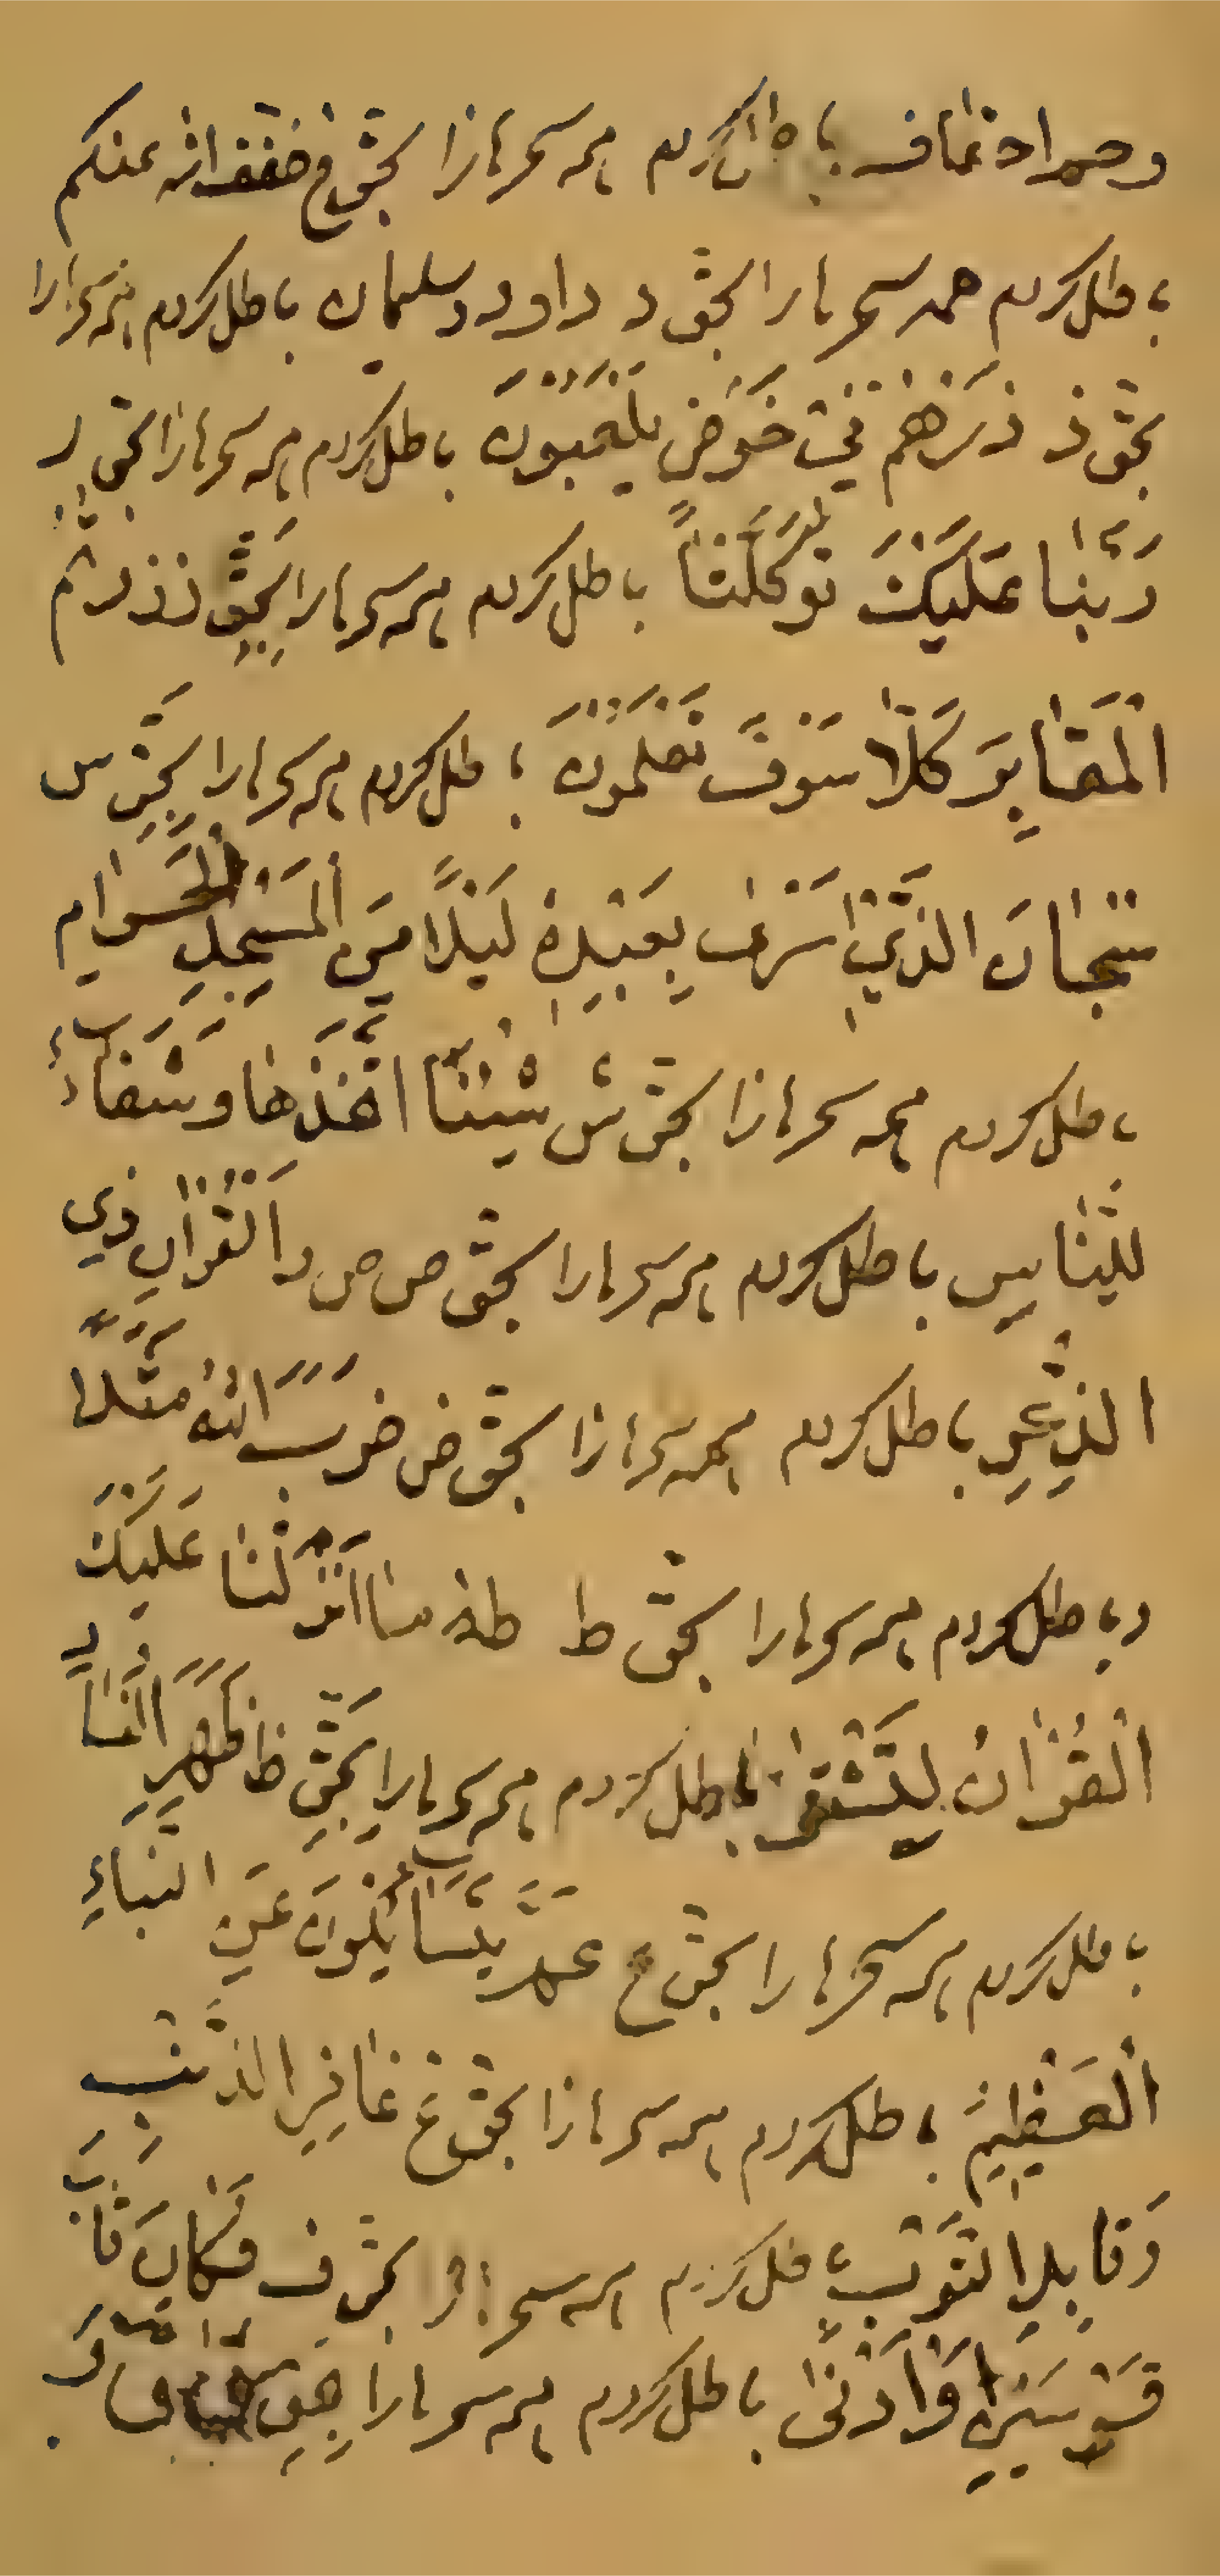 باطل کردم همه سحرها را بحق خ خفف الله عنکم
باطل کردم همه سحرها را بحق د داود و سلیمان باطل کردم همه سحرها را
بحق ذ ذَرْهُمْ فِي خَوْضٍ يَلْعَبُونَ باطل کردم همه سحرها را بحق ر
رَبَّنَا عَلَيْكَ تَوَكَّلْنَا باطل کردم همه سحرها را بحق ز زرتم
الْمَقَابِرَ كَلَّا سَوْفَ تَعْلَمُونَ باطل کردم همه سحرها را بحق س
سُبْحَانَ الَّذِي اسْرٰى بِعَبْدِهِ لَيْلًا مِنَ الْمَسْجِدِ الْحَرَامِ
باطل کردم همه سحرها را بحق ش وشفاءٌ
لِلنَّاسِ باطل کردم همه سحرها را بحق ص ص وَالْقُرْآنِ ذِي
الذِّكْرِ باطل کردم همه سحرها را بحق ض ضَرَبَ اللهُ مَثَلًا
و باطل کردم همه سحرها را بحق ط طه ما اَنْزَلْنَا عَلَيْكَ
الْقُرْآنَ لِتَشْقٰى باطل کردم همه سحرها را بحق ظ ظَهَرَ الْفَسَادُ
باطل کردم همه سحرها را بحق ع عَمَّ يَتَسَاءَلُونَ عَنِ النَّبَاءِ
الْعَظِيمِ باطل کردم همه سحرها را بحق غ غَافِرِ الذَّنْبِ
وَقَابِلِ التَّوْبِ باطل کردم همه سحرها را بحق ف فَكَانَ قَابَ
قَوْسَيْنِ اَوْ اَدْنٰى باطل کردم همه سحرها را بحق ق ق وَ